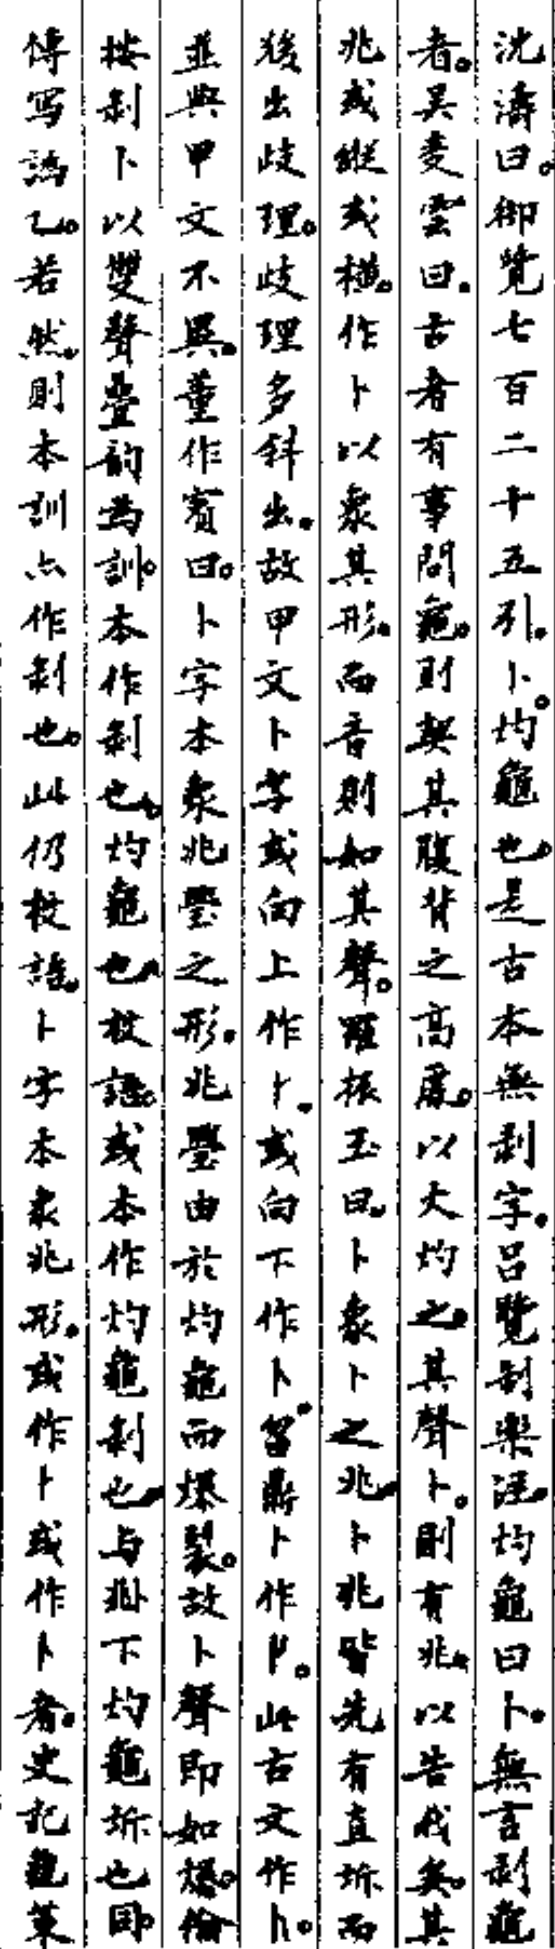 沈濤曰。御覽七百二十五引。卜。灼龜也。是古本無剝字。呂覽制樂注。灼龜曰卜。無言剝龜
者。吴麦雲曰。古者有事問龜。則契其腹背之高處。以火灼之。其聲卜。則有兆。以告我矣。其
兆或縱或橫。作卜以象其形。而音則如其聲。羅振玉曰。卜象卜之兆。卜兆皆先有直坼而
後出歧理。歧理多斜出。故甲文卜字或向上作卜。或向下作卜。曶鼎卜作。此古文作。
並與甲文不異。董作賓曰。卜字本象兆璺之形。兆璺由於灼龜而爆裂。故卜聲即如爆。倫
按剝卜以雙聲疊韵為訓。本作剝也。灼龜也校語。或本作灼龜剝也。与兆下灼龜坼也同。
傳写譌乙。若然。則本訓亦作剝也。此仍校語。卜字本象兆形。或作卜或作卜者。史記龜策